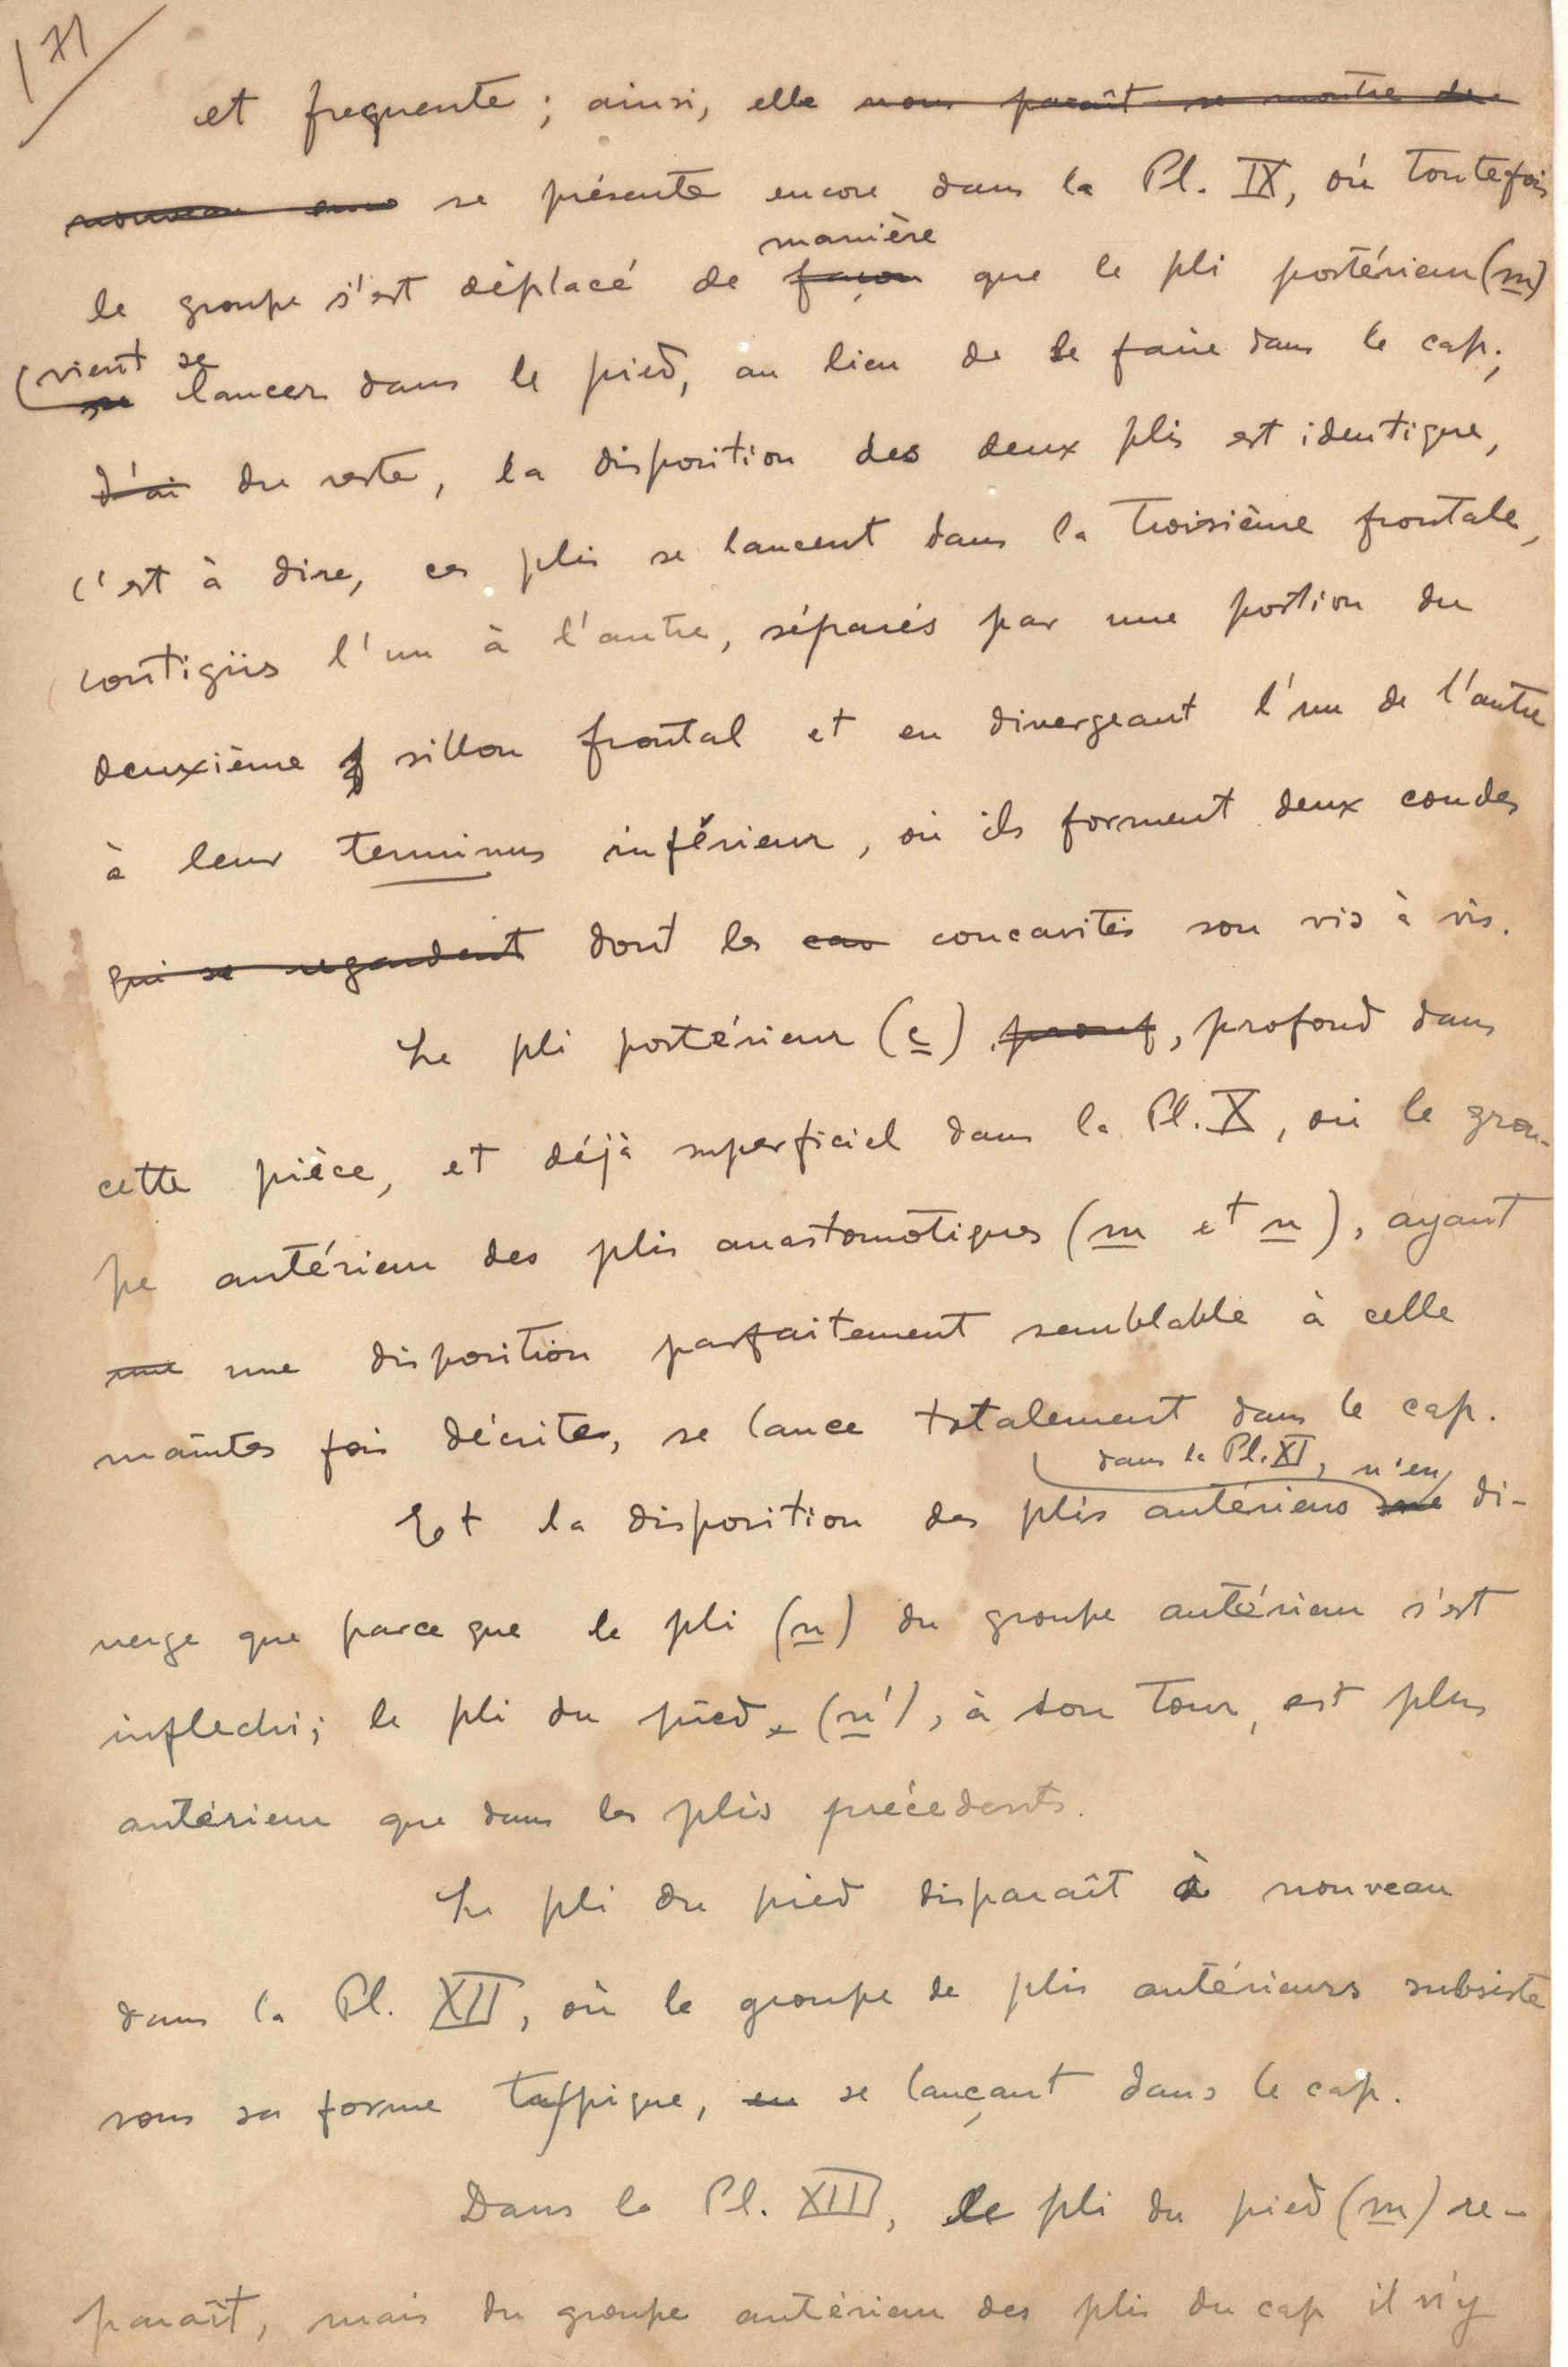 171
et frequente ; ainsi, elle nous paraît se montre de
nouveau se présente encore dans la Pl. IX, où toutefois
manière
le groupe s'est déplacé de façon que le pli postérieur (m)
vient se
se lancer dans le pied, au lieu de le faire dans le cap ;
d'ai du reste, la disposition des deux plis est identique,
c'est à dire, ces plis se lancent dans la troisième frontale,
contigüs l'un à l'autre, séparés par une portion du
deuxième sillon frontal et en divergeant l'un de l'autre
à leur terminus inférieur, où ils forment deux coudes
qui se regardent dont les cav concavités son vis à vis.
Le pli postérieur (c) prouf, profond dans
cette pièce, et déjà superficiel dans la Pl. X, où le grou-
pe antérieur des plis anastomotiques (m et n), ayant
une une disposition parfaitement semblable à celle
maintes fois décrites, se lance totalement dans le cap.
dans la Pl. XI, n'en
Et la disposition des plis antérieurs di-
verge que parce que le pli (n) du groupe antérieur s'est
inflechi ; le pli du pied (n'), à son tour, est plus
antérieur que dans les plis précédents.
Le pli du pied disparaît à nouveau
dans la Pl. XII, où le groupe de plis antérieurs subsiste
sous sa forme typique, en se lançant dans le cap.
Dans la Pl. XIII, le pli du pied (m) re-
paraît, mais du groupe antérieur des plis du cap il n'y